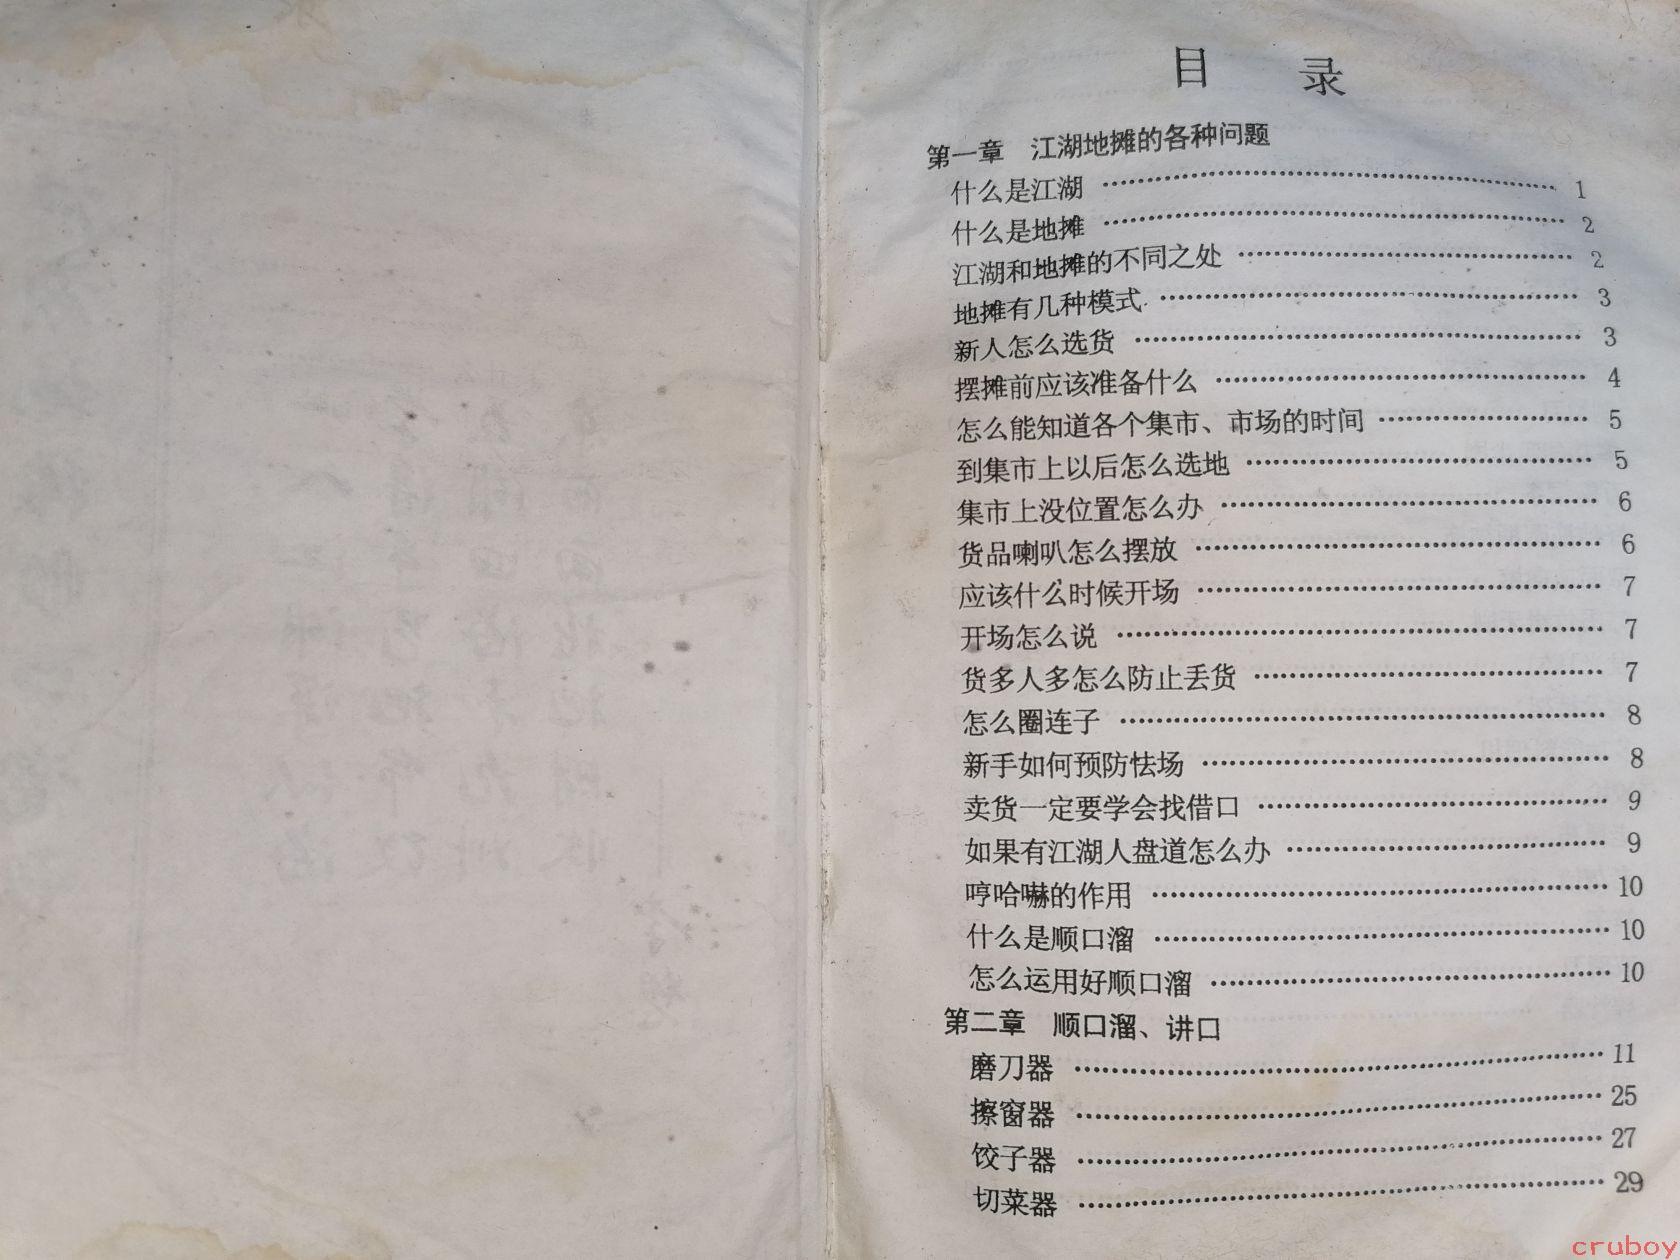 目 录
第一章 江湖地摊的各种问题
什么是江湖 ……………………………… 1
什么是地摊 ……………………………… 2
江湖和地摊的不同之处 ……………………………… 2
地摊有几种模式 ……………………………… 3
新人怎么选货 ……………………………… 3
摆摊前应该准备什么 ……………………………… 4
怎么能知道各个集市、市场的时间 ……………………………… 5
到集市上以后怎么选地 ……………………………… 5
集市上没位置怎么办 ……………………………… 6
货品喇叭怎么摆放 ……………………………… 6
应该什么时候开场 ……………………………… 7
开场怎么说 ……………………………… 7
货多人多怎么防止丢货 ……………………………… 7
怎么圈连子 ……………………………… 8
新手如何预防怯场 ……………………………… 8
卖货一定要学会找借口 ……………………………… 9
如果有江湖人盘道怎么办 ……………………………… 9
哼哈嚇的作用 ……………………………… 10
什么是顺口溜 ……………………………… 10
怎么运用好顺口溜 ……………………………… 10
第二章 顺口溜、讲口
磨刀器 ……………………………… 11
擦窗器 ……………………………… 25
饺子器 ……………………………… 27
切菜器 ……………………………… 29
cruboy